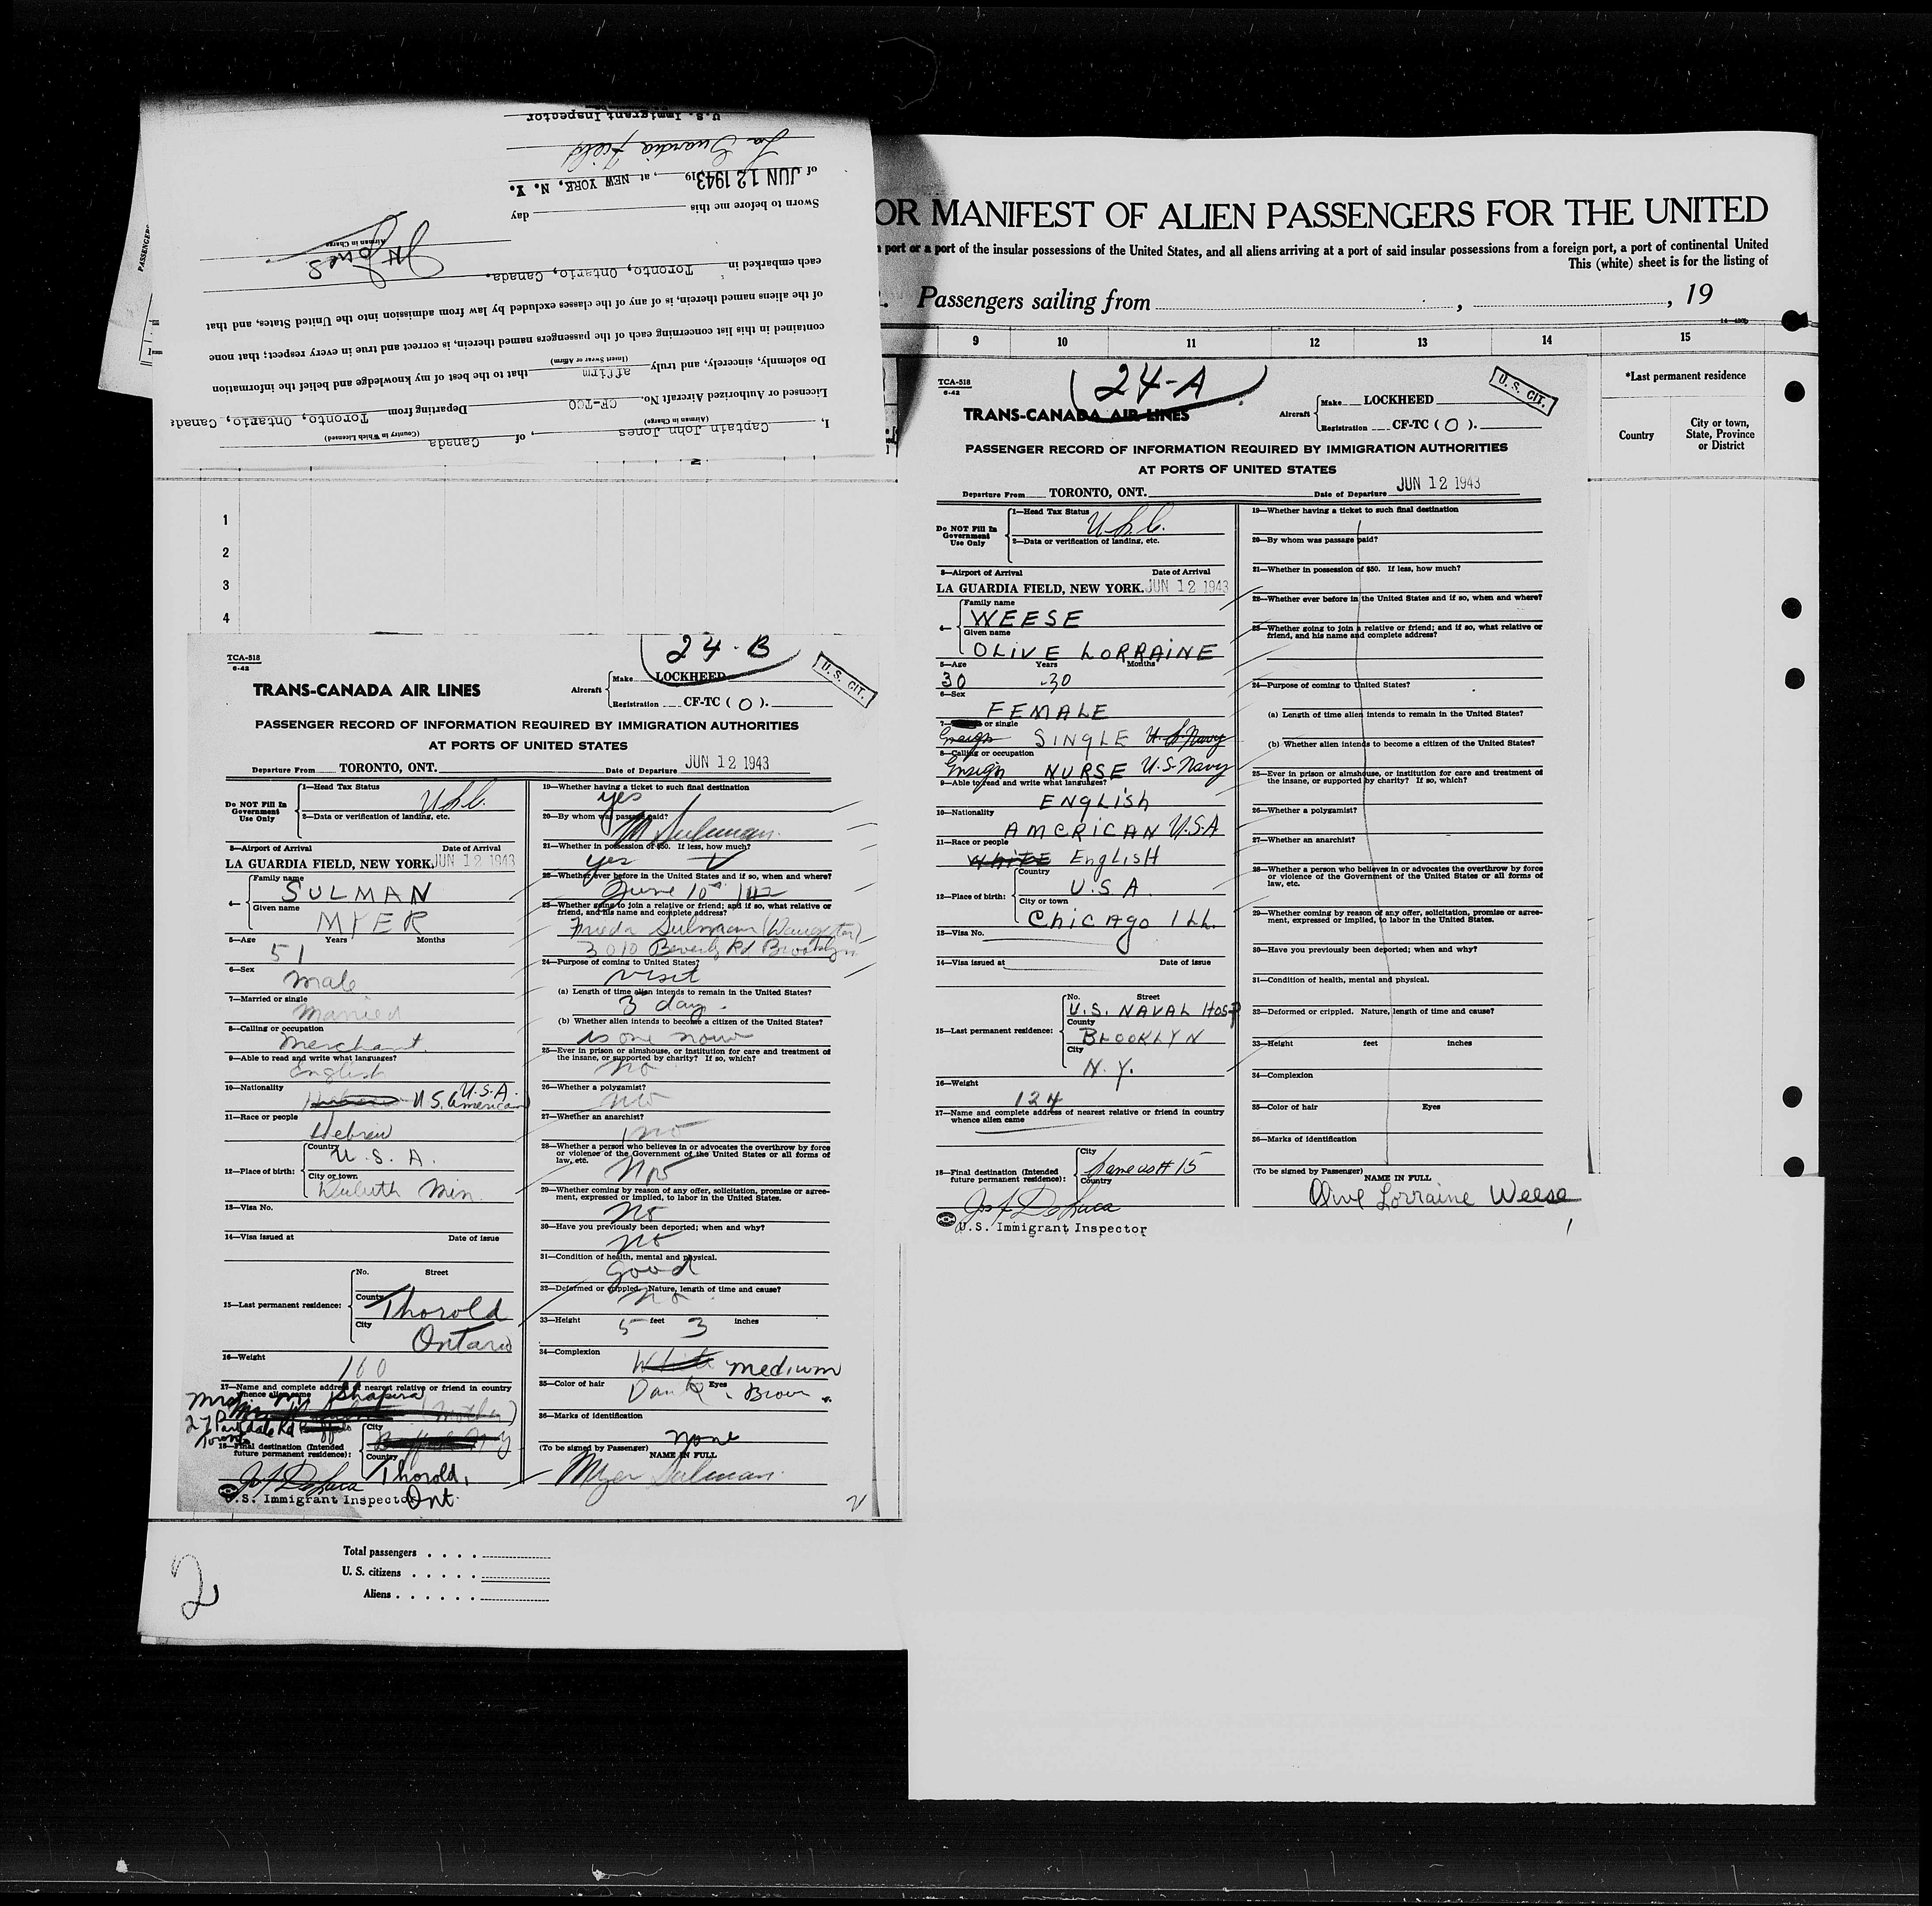 U.S. Immigrant Inspector
La Guardia Field
of JUN 12 1943 19, at NEW YORK, N. Y.
Sworn to before me this day
Airman in Charge
JH Jones
each embarked in Toronto, Ontario, Canada.
of the aliens named therein, is of any of the classes excluded by law from admission into the United States, and that
contained in this list concerning each of the passengers named therein, is correct and true in every respect; that none
(Insert Swear or Affirm)
Do solemnly, sincerely, and truly affirm that to the best of my knowledge and belief the information
Licensed or Authorized Aircraft No. CF-TCO Departing from Toronto, Ontario, Canada
(Airman in Charge) (Country in Which Licensed)
I, Captain John Jones, of Canada
PASSENGERS
1
2
3
4
OR MANIFEST OF ALIEN PASSENGERS FOR THE UNITED
port or a port of the insular possessions of the United States, and all aliens arriving at a port of said insular possessions from a foreign port, a port of continental United
This (white) sheet is for the listing of
Passengers sailing from , , 19
9 10 11 12 13 14 15
*Last permanent residence
Country
City or town, State, Province or District
24-B
TCA-518
6-42
TRANS-CANADA AIR LINES
Aircraft
Make LOCKHEED
Registration CF-TC ( O ).
U. S. CIT.
PASSENGER RECORD OF INFORMATION REQUIRED BY IMMIGRATION AUTHORITIES
AT PORTS OF UNITED STATES
Departure From TORONTO, ONT. Date of Departure JUN 12 1943
Do NOT Fill In Government Use Only
1—Head Tax Status USC.
2—Data or verification of landing, etc.
3—Airport of Arrival Date of Arrival
LA GUARDIA FIELD, NEW YORK. JUN 12 1943
4—
Family name
SULMAN
Given name
MYER
5—Age Years Months
51
6—Sex
Male
7—Married or single
Married
8—Calling or occupation
Merchant
9—Able to read and write what languages?
English
10—Nationality
U.S. American U.S.A.
11—Race or people
Hebrew
12—Place of birth:
Country
U. S. A.
City or town
Duluth Min.
13—Visa No.
14—Visa issued at Date of issue
15—Last permanent residence:
No. Street
County
Thorold
City
Ontario
16—Weight
160
17—Name and complete address of nearest relative or friend in country
whence alien came
Mrs. M. Shapira
(Mother)
27 Parkdale Rd
Toronto
18—Final destination (Intended
future permanent residence):
City
Country
Thorold,
Ont.
Jos F DeLuca
U.S. Immigrant Inspector
19—Whether having a ticket to such final destination
yes
20—By whom was passage paid?
M Sulman.
21—Whether in possession of $50. If less, how much?
yes
22—Whether ever before in the United States and if so, when and where?
June 10th /42
23—Whether going to join a relative or friend; and if so, what relative or
friend, and his name and complete address?
Frieda Sulman (Daughter)
3010 Beverly Rd Brooklyn
24—Purpose of coming to United States?
visit
(a) Length of time alien intends to remain in the United States?
3 day.
(b) Whether alien intends to become a citizen of the United States?
is one now
25—Ever in prison or almshouse, or institution for care and treatment of
the insane, or supported by charity? If so, which?
no
26—Whether a polygamist?
no
27—Whether an anarchist?
no
28—Whether a person who believes in or advocates the overthrow by force
or violence of the Government of the United States or all forms of
law, etc.
No
29—Whether coming by reason of any offer, solicitation, promise or agree-
ment, expressed or implied, to labor in the United States.
no
30—Have you previously been deported; when and why?
no
31—Condition of health, mental and physical.
good
32—Deformed or crippled. Nature, length of time and cause?
no
33—Height 5 feet 3 inches
34—Complexion
White medium
35—Color of hair Dark Eyes Brown
36—Marks of identification
none
(To be signed by Passenger) NAME IN FULL
Myer Sulman.
2
Total passengers
U. S. citizens
Aliens
2
24-A
TCA-518
6-42
TRANS-CANADA AIR LINES
Aircraft
Make LOCKHEED
Registration CF-TC ( O ).
U. S. CIT.
PASSENGER RECORD OF INFORMATION REQUIRED BY IMMIGRATION AUTHORITIES
AT PORTS OF UNITED STATES
Departure From TORONTO, ONT. Date of Departure JUN 12 1943
Do NOT Fill In Government Use Only
1—Head Tax Status USC.
2—Data or verification of landing, etc.
3—Airport of Arrival Date of Arrival
LA GUARDIA FIELD, NEW YORK. JUN 12 1943
4—
Family name
WEESE
Given name
OLIVE LORRAINE
5—Age Years Months
30 30
6—Sex
FEMALE
7— or single
Ensign SINGLE U.S. Navy
8—Calling or occupation
Ensign NURSE U.S. Navy
9—Able to read and write what languages?
ENGLISH
10—Nationality
AMERICAN U.S.A
11—Race or people
WHITE ENGLISH
12—Place of birth:
Country
U.S A.
City or town
CHICAGO ILL.
13—Visa No.
14—Visa issued at Date of issue
15—Last permanent residence:
No. Street
U.S. NAVAL HOSP
County
BLOOKLYN
City
N.Y.
16—Weight
124
17—Name and complete address of nearest relative or friend in country
whence alien came
18—Final destination (Intended
future permanent residence):
City
Same as # 15
Country
Jos F DeLuca
U.S. Immigrant Inspector
19—Whether having a ticket to such final destination
20—By whom was passage paid?
21—Whether in possession of $50. If less, how much?
22—Whether ever before in the United States and if so, when and where?
23—Whether going to join a relative or friend; and if so, what relative or
friend, and his name and complete address?
24—Purpose of coming to United States?
(a) Length of time alien intends to remain in the United States?
(b) Whether alien intends to become a citizen of the United States?
25—Ever in prison or almshouse, or institution for care and treatment of
the insane, or supported by charity? If so, which?
26—Whether a polygamist?
27—Whether an anarchist?
28—Whether a person who believes in or advocates the overthrow by force
or violence of the Government of the United States or all forms of
law, etc.
29—Whether coming by reason of any offer, solicitation, promise or agree-
ment, expressed or implied, to labor in the United States.
30—Have you previously been deported; when and why?
31—Condition of health, mental and physical.
32—Deformed or crippled. Nature, length of time and cause?
33—Height feet inches
34—Complexion
35—Color of hair Eyes
36—Marks of identification
(To be signed by Passenger) NAME IN FULL
Olive Lorraine Weese
1